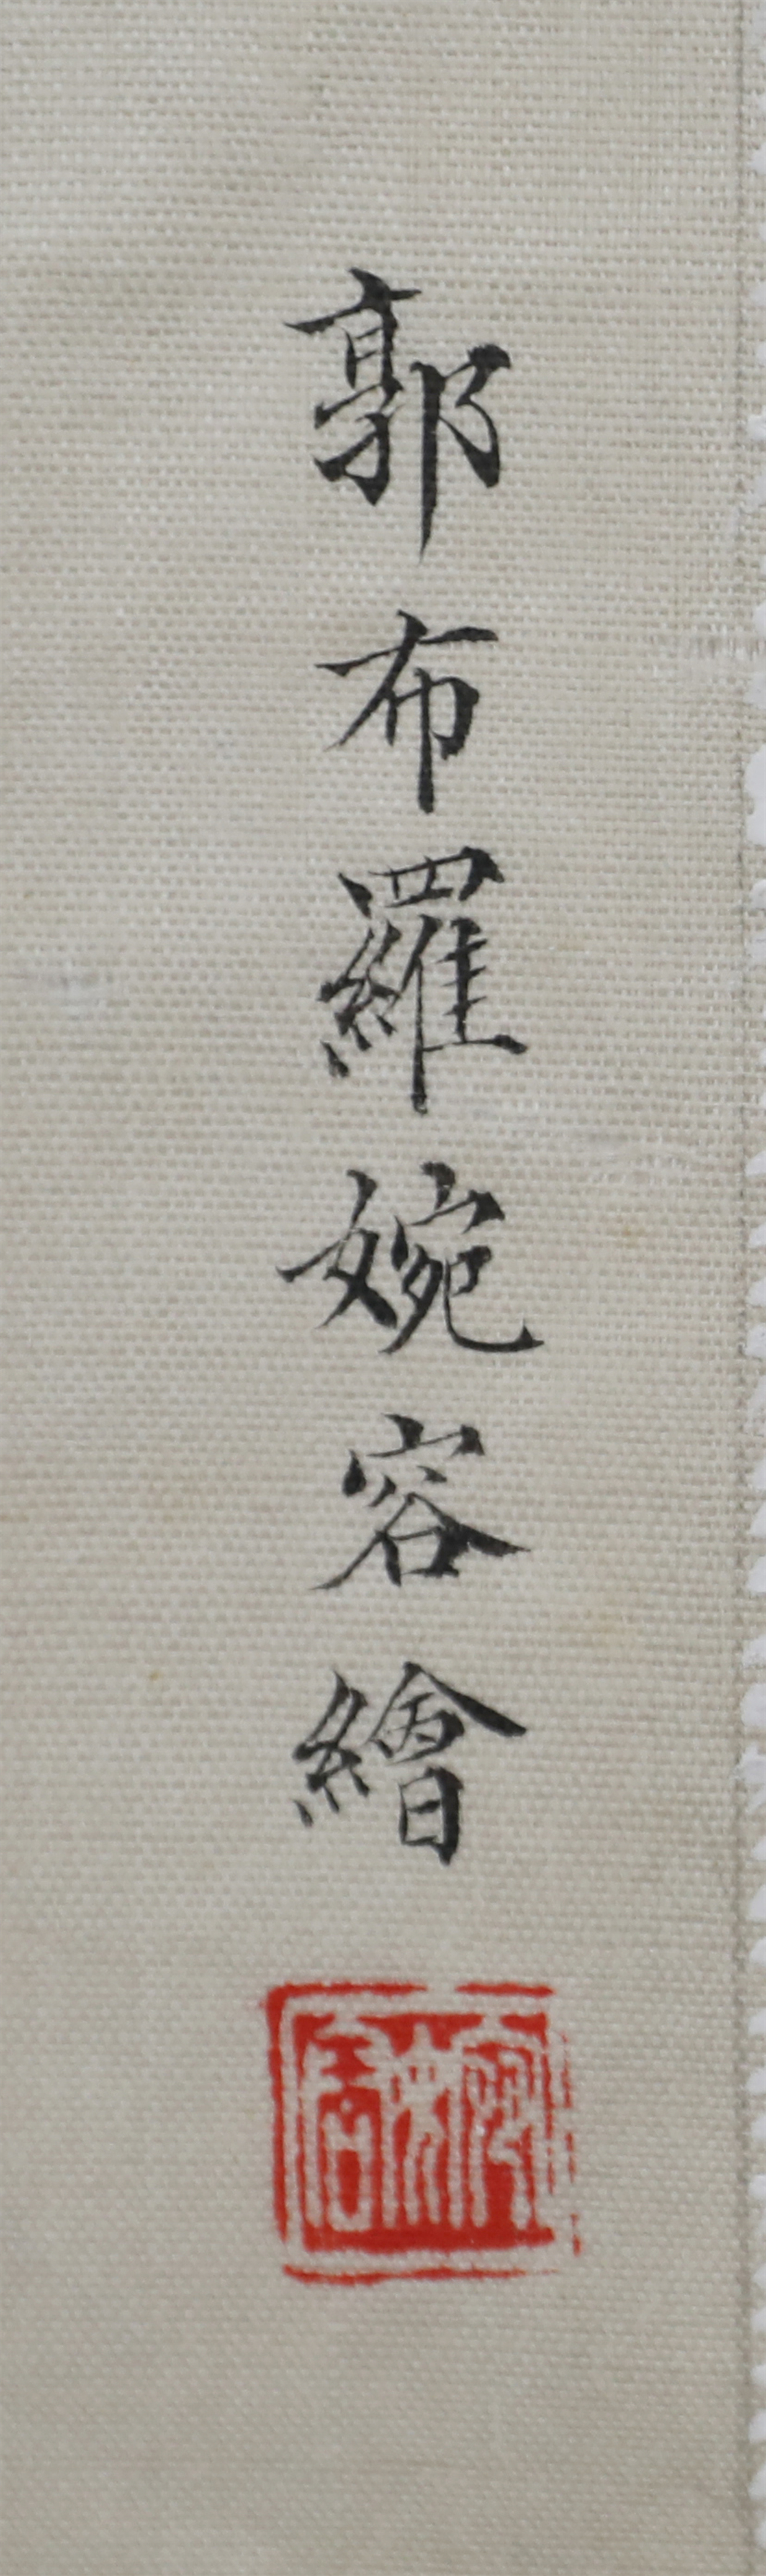 郭布羅婉容繪